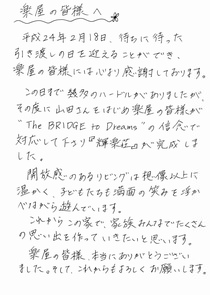 楽屋の皆様へ
平成24年2月18日、待ちに待った
引き渡しの日を迎えることができ、
楽屋の皆様には心より感謝しております。
この日まで幾つかのハードルがありましたが、
その度に山田さんをはじめ楽屋の皆様が
"The BRIDGE to Dreams"の信念で
対応して下さり『輝楽荘』が完成しま
した。
開放感のあるリビングは想像以上に
温かく、子どもたちも満面の笑みを浮か
べながら遊んでいます。
これからこの家で、家族みんなでたくさん
の思い出を作っていきたいと思います。
楽屋の皆様、本当にありがとうござい
ました。そして、これからもよろしくお願いします。